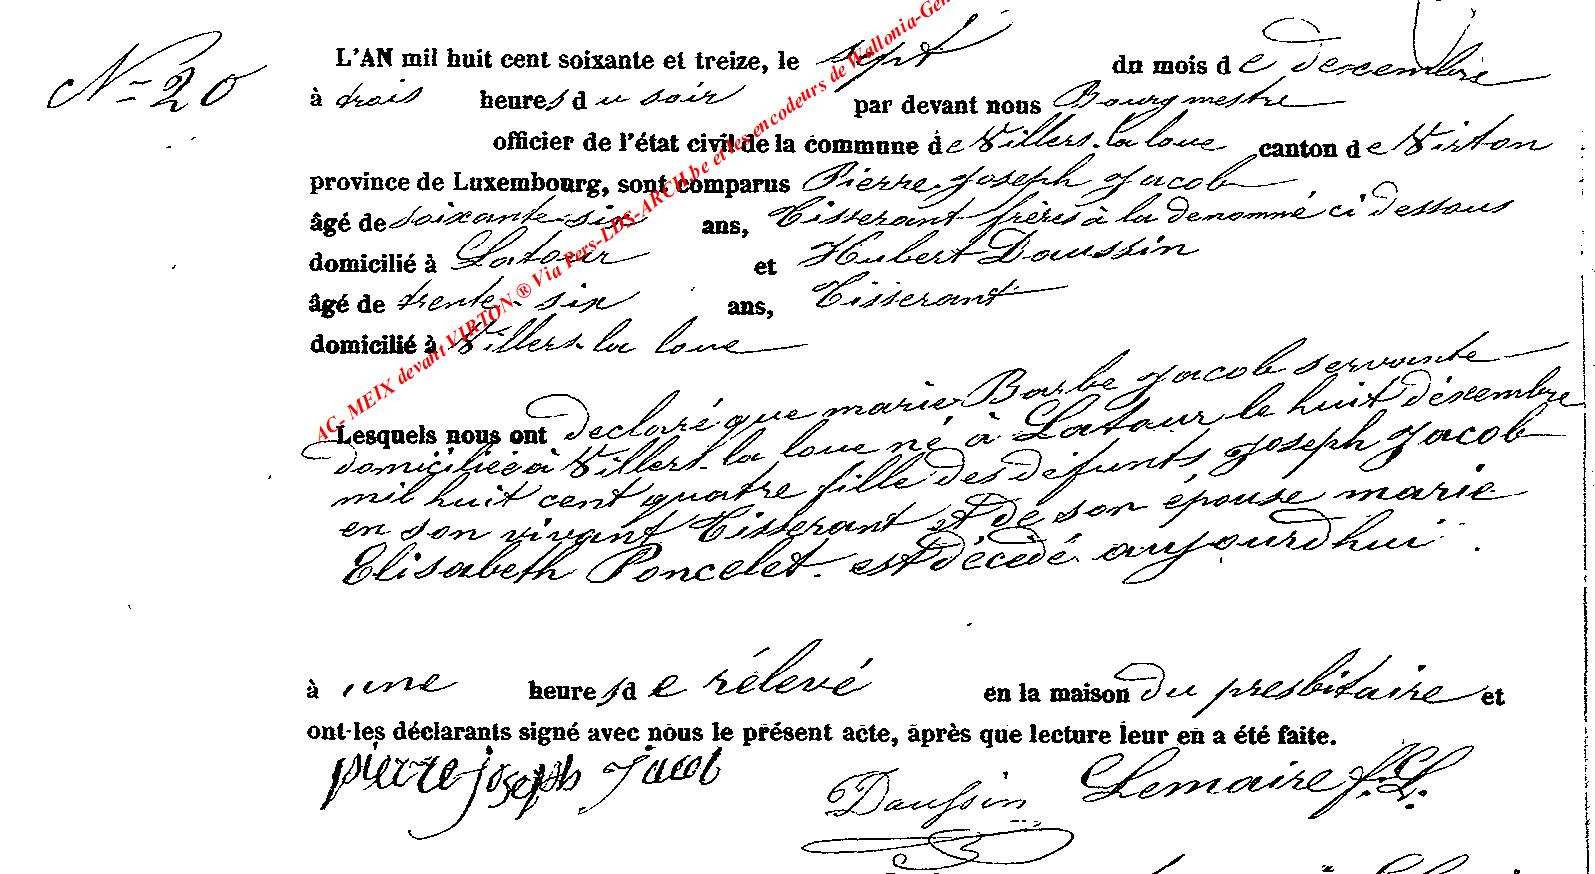 N= 20
L'AN mil huit cent soixante et treize, le sept du mois de descembre
à trois heures du soir par devant nous Bourgmestre
officier de l'état civil de la commune de Villers-la loue canton de Virton
province de Luxembourg, sont comparus Pierre Joseph Jacob
âgé de soixante-six ans, Tisserant frères à la denommé ci dessous
domicilié à Latour et Hubert Daussin
âgé de trente-six ans, Tisserant
domicilié à Villers-la loue
Lesquels nous ont declaré que marie Barbe Jacob servante
domiciliée à Villers-la loue né à Latour le huit désembre
mil huit cent quatre fille des défunts Joseph Jacob
en son vivant Tisserant et de son épouse marie
Elisabeth Poncelet. est décédé aujourdhui
à une heures de rélevé en la maison du presbitaire et
ont les déclarants signé avec nous le présent acte, après que lecture leur en a été faite.
pierre joseph Jacob Daussin Lemaire f.L.
AC- MEIX devant VIRTON ® Via Pers-LDS-ARCH.be et les encodeurs de Wallonia-Gen